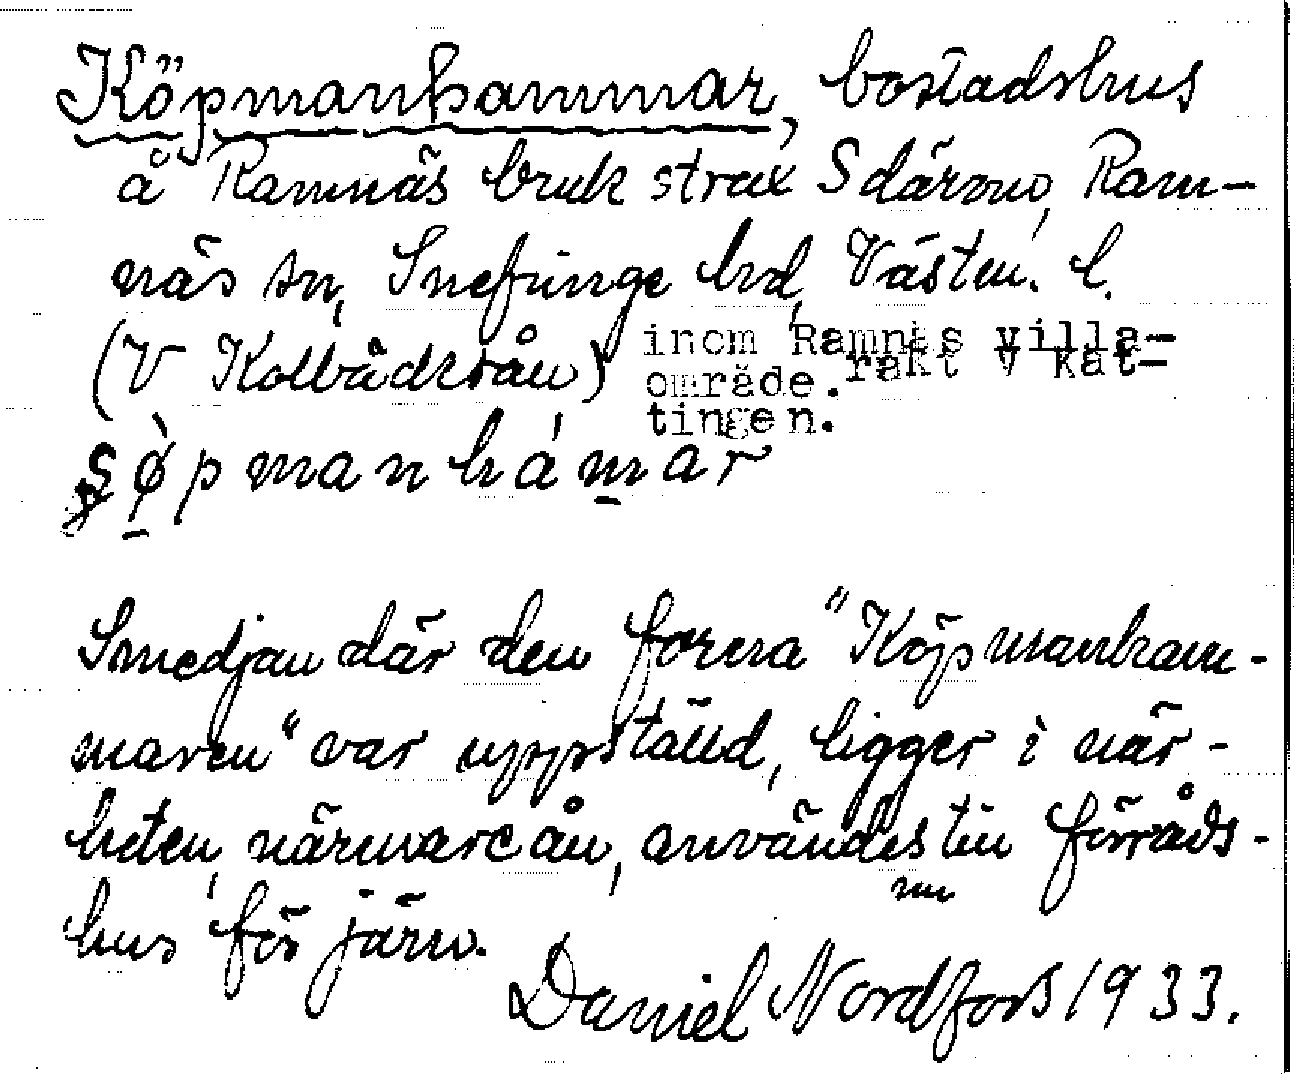 Köpmanhammar, bostadshus
å Ramnäs bruk strax S därom, Ram-
näs sn, Snefringe hd, Västm. l.
(V Kolbäcksån) inom Ramnäs villa-
område. rakt V Kät-
tingen.
öpmanhámar
Smedjan där den förra "Köpmanham-
maren" var uppställd, ligger i när-
heten, närmare ån, användes till förråds-
nu
hus för järn.
Daniel Nordfors 1933.